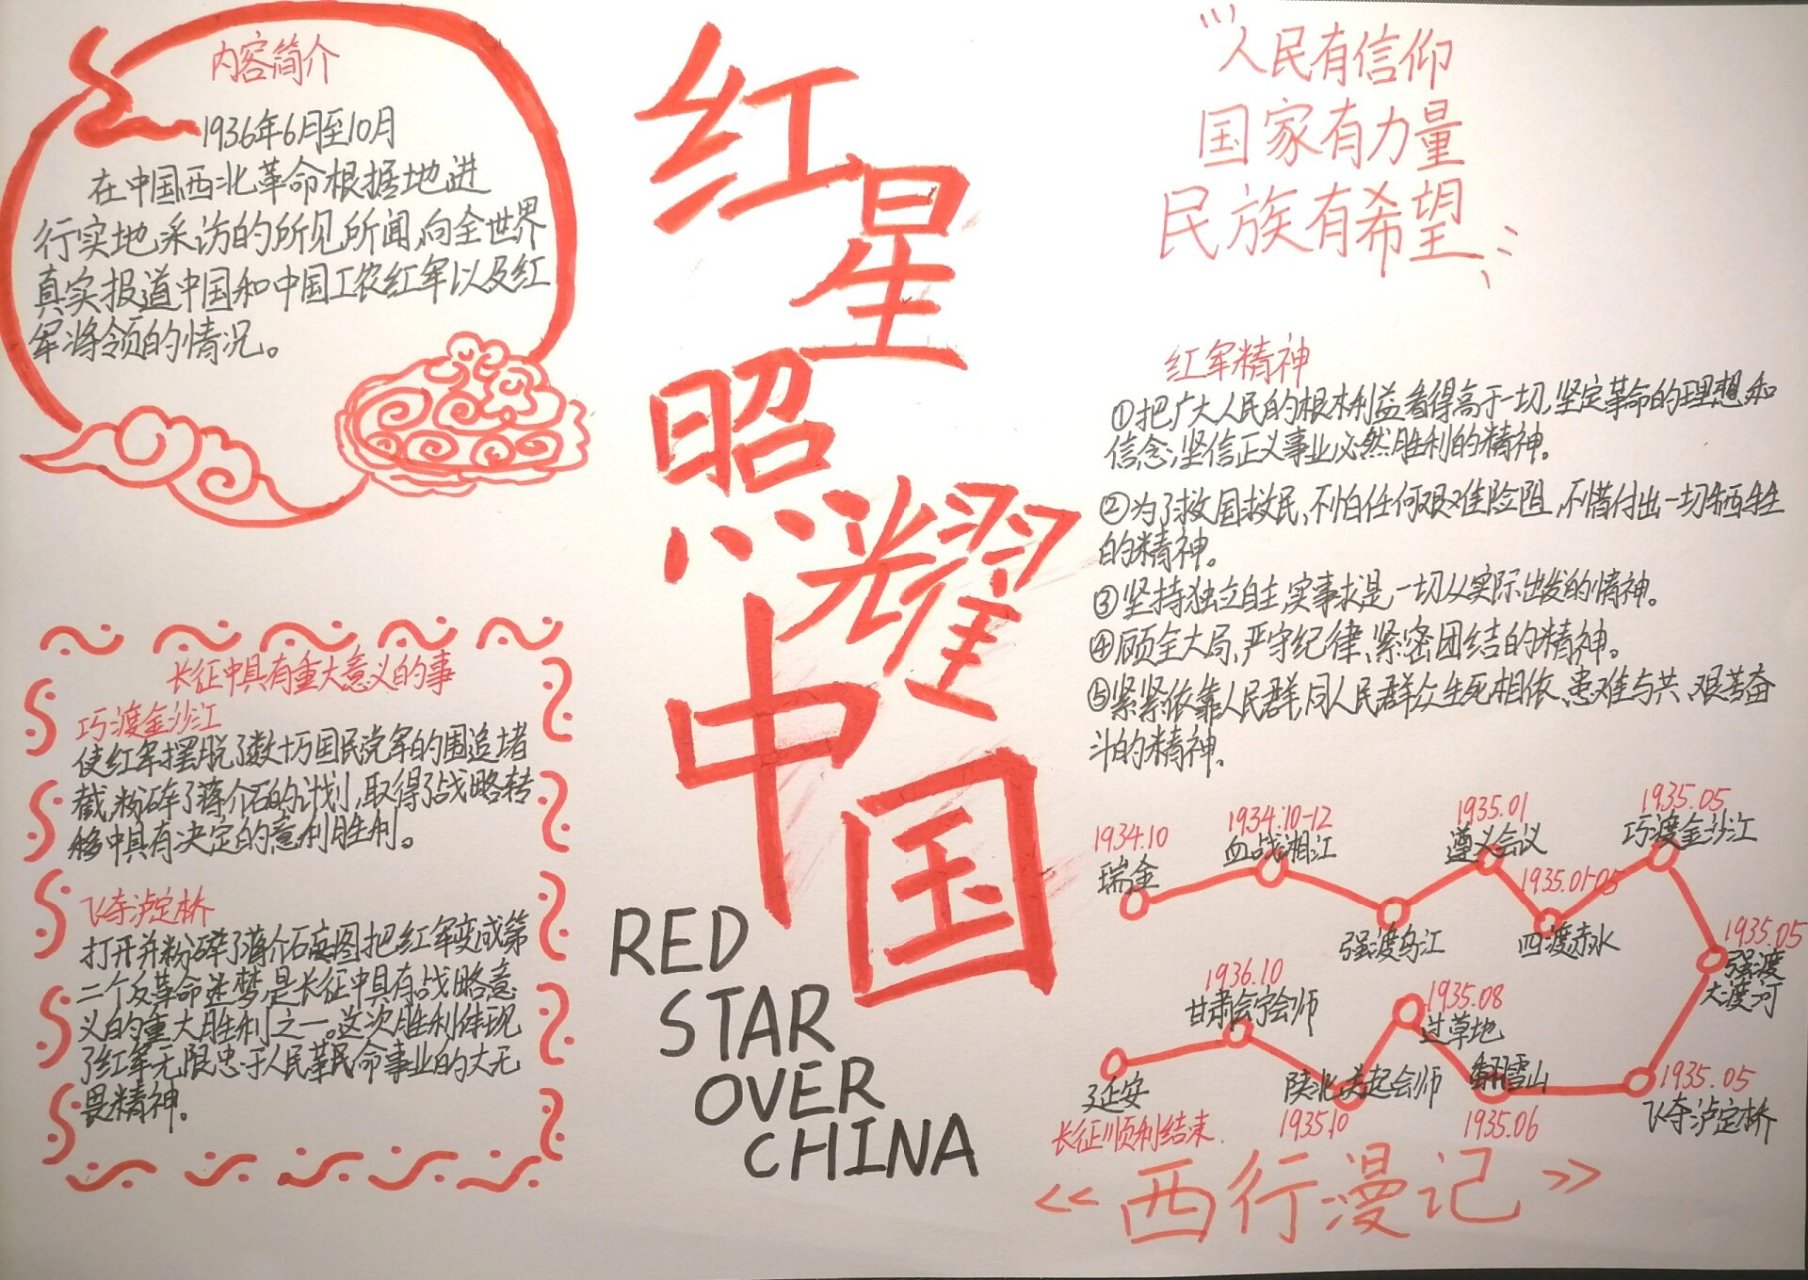 内容简介
1936年6月至10月
在中国西北革命根据地进
行实地采访的所见所闻,向全世界
真实报道中国和中国工农红军以及红
军将领的情况。
长征中具有重大意义的事
巧渡金沙江
使红军摆脱了数十万国民党军的围追堵
截,粉碎了蒋介石的计划,取得了战略转
移中具有决定的意利胜利。
飞夺泸定桥
打开并粉碎了蒋介石妄图把红军变成第
二个反革命迷梦,是长征中具有战略意
义的重大胜利之一。这次胜利体现
了红军无限忠于人民革民命事业的大无
畏精神。
红星照耀中国
RED
STAR
OVER
CHINA
人民有信仰
国家有力量
民族有希望
红军精神
①把广大人民的根本利益看得高于一切,坚定革命的理想和
信念,坚信正义事业必然胜利的精神。
②为了救国救民,不怕任何艰难险阻,不惜付出一切牺牲
的精神。
③坚持独立自主,实事求是,一切从实际出发的精神。
④顾全大局,严守纪律、紧密团结的精神。
⑤紧紧依靠人民群,同人民群众生死相依、患难与共、艰苦奋
斗的精神。
1934.10
瑞金
1934.10-12
血战湘江
强渡乌江
1935.01
遵义会议
1935.01-05
四渡赤水
1935.05
巧渡金沙江
1935.05
强渡
大渡河
1935.05
飞夺泸定桥
翻雪山
1935.06
1935.08
过草地
陕北吴起会师
1935.10
1936.10
甘肃会宁会师
延安
长征顺利结束.
《西行漫记》